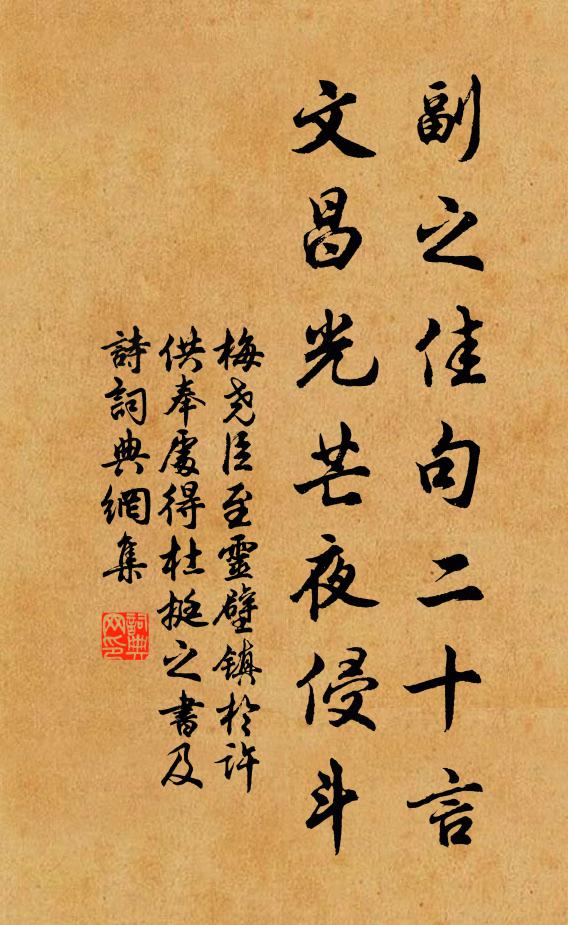 副之佳句二十言
文昌光芒夜侵斗
梅尧臣至靈壁镇於许
供奉處得杜挺之書及
詩詞典網集
詞典网印